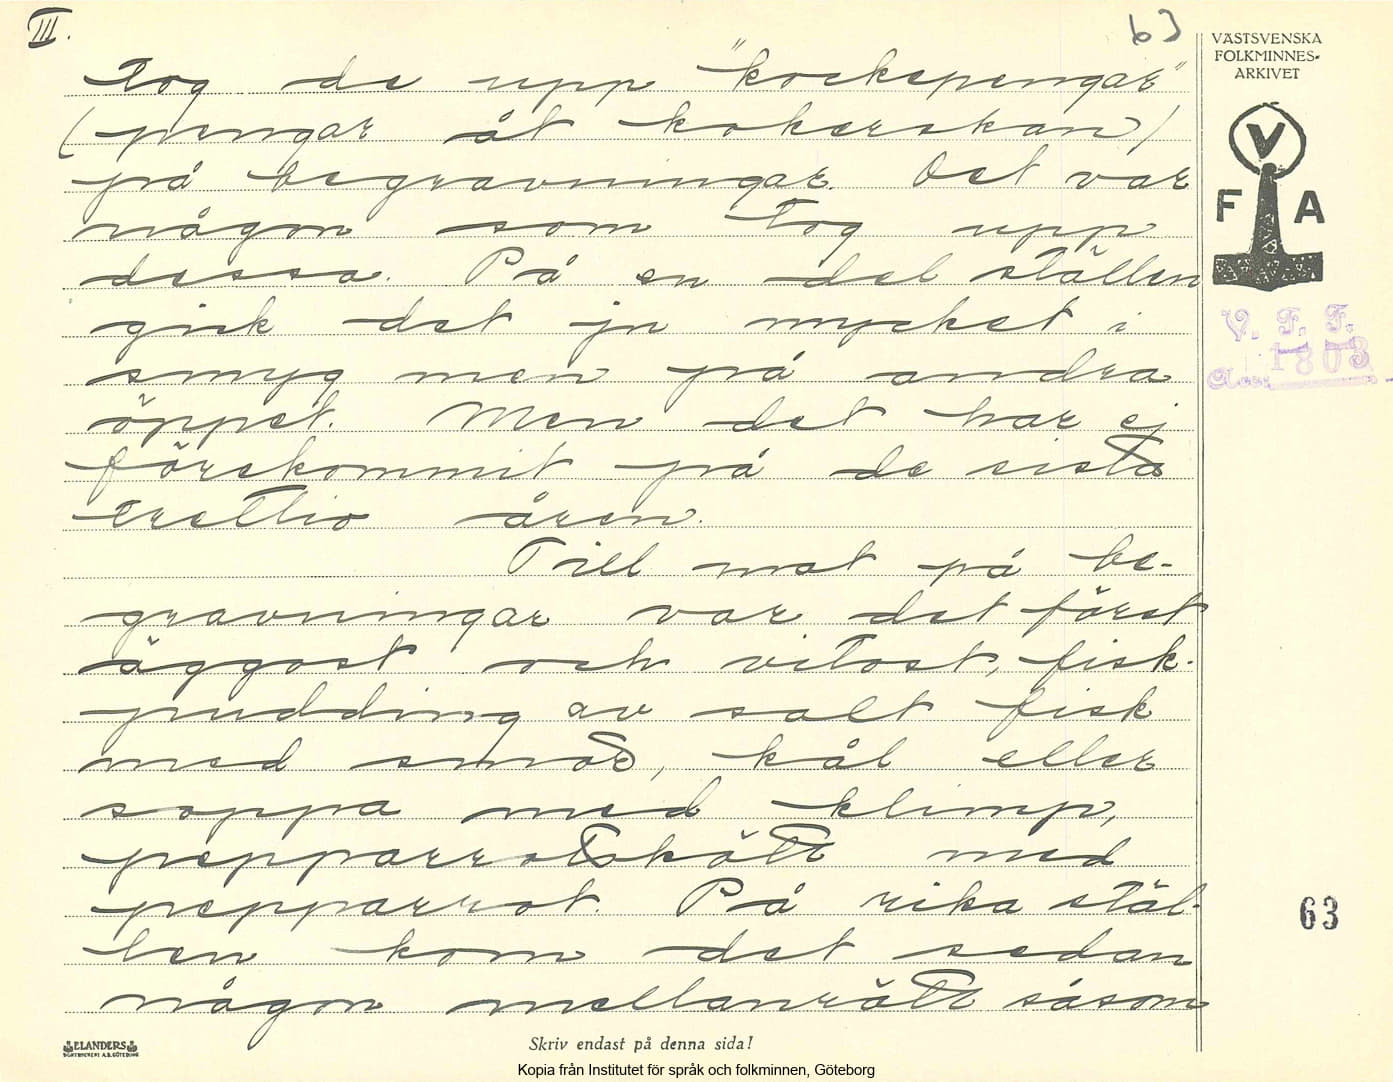 III.
63
VÄSTSVENSKA
FOLKMINNES-
ARKIVET
V
F A
V. F. F.
1803
Tog de upp "kockepengar"
(pengar åt kokerskan)
på begravningar. Det var
någon som tog upp
dessa. På en del ställen
gick det ju mycket i
smyg men på andra
öppet. Men det har ej
förekommit på de sista
trettio åren.
Till mat på be-
gravningar var det först
äggost och vitost, fisk-
pudding av salt fisk
med smör, kål eller
soppa med klimp,
pepparrotskött med
pepparrot. På rika stäl-
len kom det sedan
någon mellanrätt såsom
63
ELANDERS
BOKTRYCKERI A.B. GÖTEBORG
Skriv endast på denna sida!
Kopia från Institutet för språk och folkminnen, Göteborg